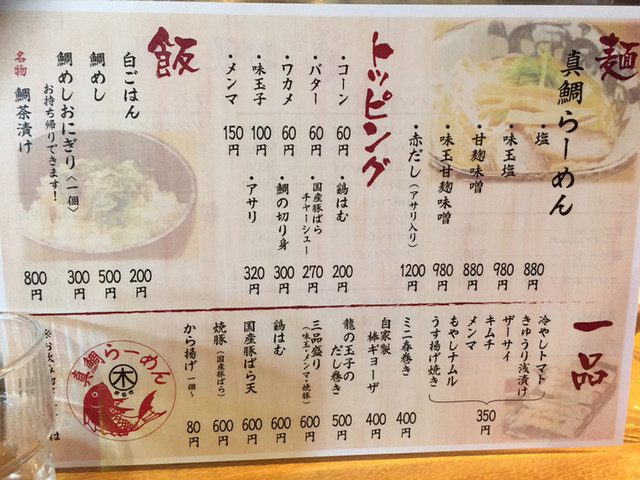 麺
真鯛らーめん
・塩 880円
・味玉塩 980円
・甘麹味噌 880円
・味玉甘麹味噌 980円
・赤だし(アサリ入り) 1200円
トッピング
・コーン 60円
・バター 60円
・ワカメ 60円
・味玉子 100円
・メンマ 150円
・鶏はむ 200円
・国産豚ばらチャーシュー 270円
・鯛の切り身 300円
・アサリ 320円
飯
白ごはん 200円
鯛めし 500円
鯛めしおにぎり〈一個〉 300円
お持ち帰りできます!
名物 鯛茶漬け 800円
一品
冷やしトマト
きゅうり浅漬け
ザーサイ
キムチ
メンマ
もやしナムル
うす揚げ焼き
350円
ミニ春巻き 400円
自家製棒ギョーザ 400円
龍の玉子のだし巻き 500円
三品盛り(味玉・メンマ・焼豚) 600円
鶏はむ 600円
国産豚ばら天 600円
焼豚(国産豚ばら) 600円
から揚げ 一個~ 80円
真鯛らーめん
木